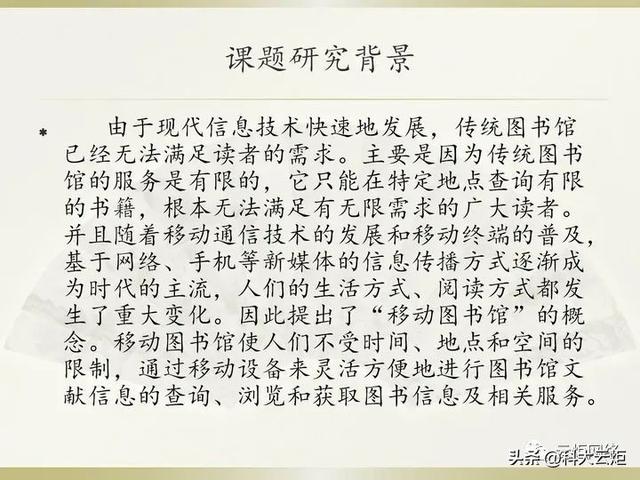 课题研究背景
* 由于现代信息技术快速地发展，传统图书馆
已经无法满足读者的需求。主要是因为传统图书
馆的服务是有限的，它只能在特定地点查询有限
的书籍，根本无法满足有无限需求的广大读者。
并且随着移动通信技术的发展和移动终端的普及，
基于网络、手机等新媒体的信息传播方式逐渐成
为时代的主流，人们的生活方式、阅读方式都发
生了重大变化。因此提出了“移动图书馆”的概
念。移动图书馆使人们不受时间、地点和空间的
限制，通过移动设备来灵活方便地进行图书馆文
献信息的查询、浏览和获取图书信息及相关服务。
云炬网络
头条 @科大云炬